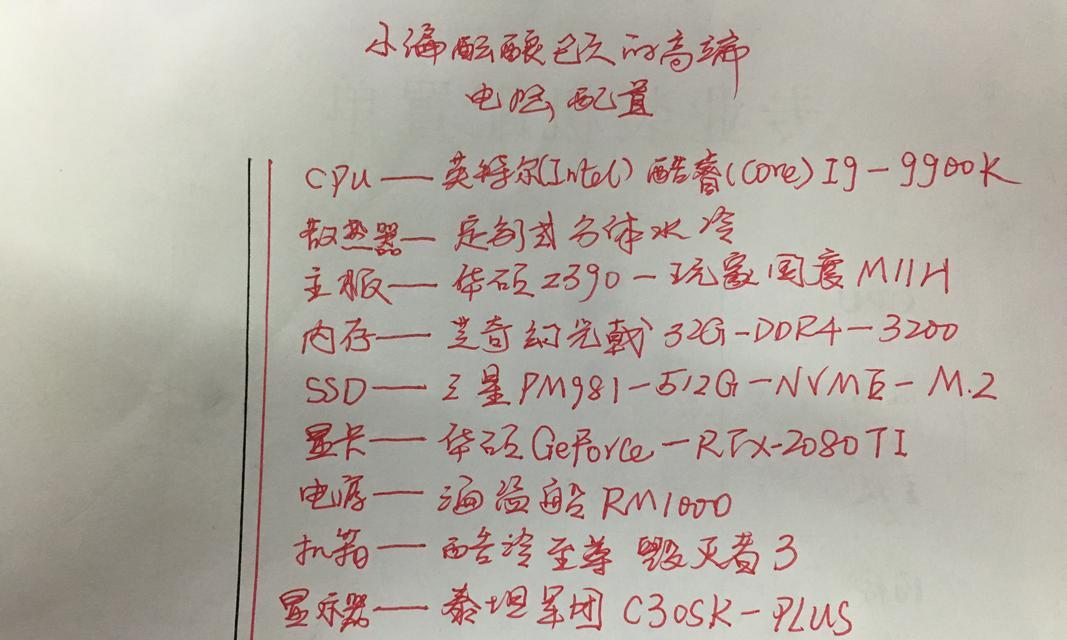 小编酝酿已久的高端
电脑配置
CPU——英特尔(Intel)酷睿(Core)I9-9900K
散热器—定制式分体水冷
主板——华硕Z390-玩家国度M11H
内存——芝奇幻光戟32G-DDR4-3200
SSD——三星PM981-512G-NVME-M.2
显卡——华硕GeForce-RTX-2080TI
电源——海盗船RM1000
机箱——酷冷至尊 毁灭者3
显示器——泰坦军团C30SK-PLUS